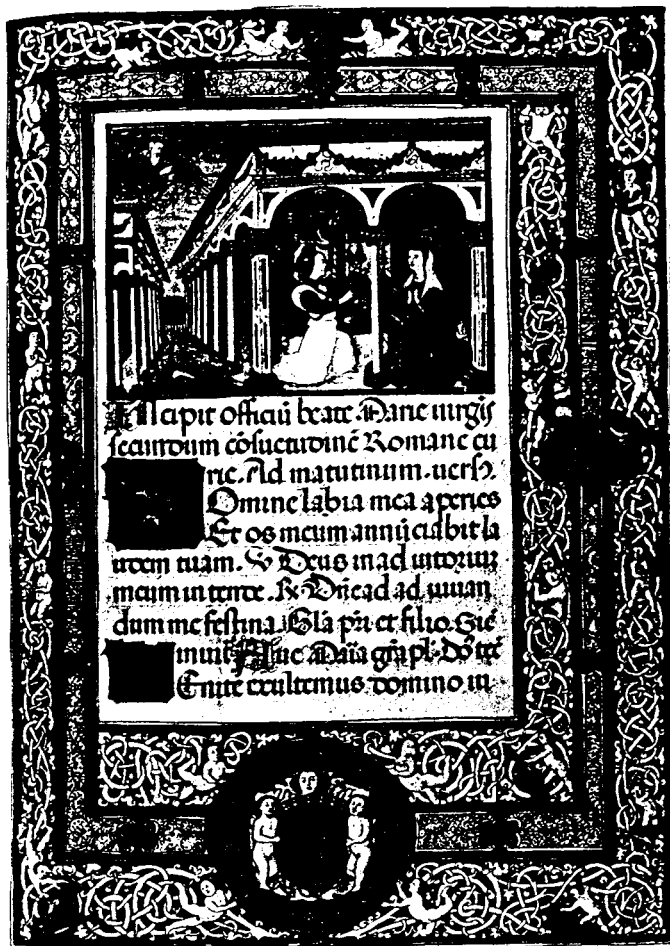 Incipit officiū beate Marie uirgīs
secundum cōsuetudinē Romane cu
rie. Ad matutinum. uers.
Domine labia mea aperies
Et os meum annūciabit la
udem tuam. ℣ Deus in ad iutoriuȝ
meum in tende. ℟ Dn̄e ad ad iuuan
dum me festina. Gl̄a pr̄i et filio. Sic
inuit. Aue Maīa gr̄a pl. dō tec̄
Enite exultemus domino iu